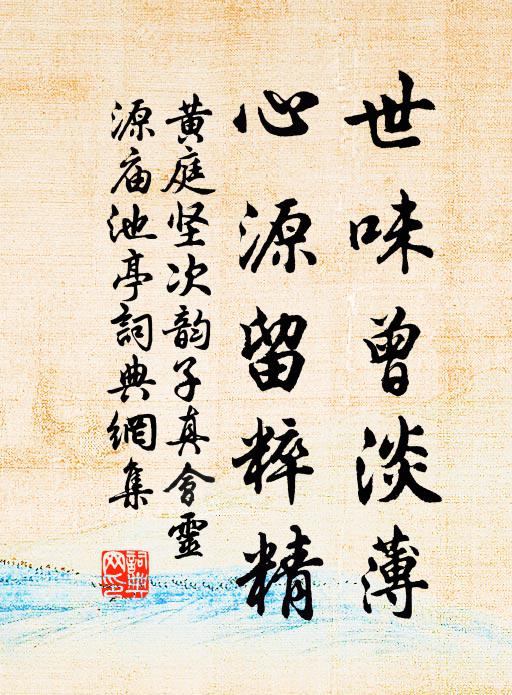 世味曾淡薄
心源留粹精
黄庭坚次韵子真會靈
源庙池亭詞典網集